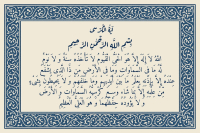 آية الكرسي
بسم الله الرحمن الرحيم
الله لا إله إلا هو الحي القيوم لا تأخذه سنة ولا نوم
له ما في السماوات وما في الأرض من ذا الذي يشفع
عنده إلا بإذنه يعلم ما بين أيديهم وما خلفهم ولا يحيطون بشيء
من علمه إلا بما شاء وسع كرسيه السماوات والأرض
ولا يؤوده حفظهما وهو العلي العظيم